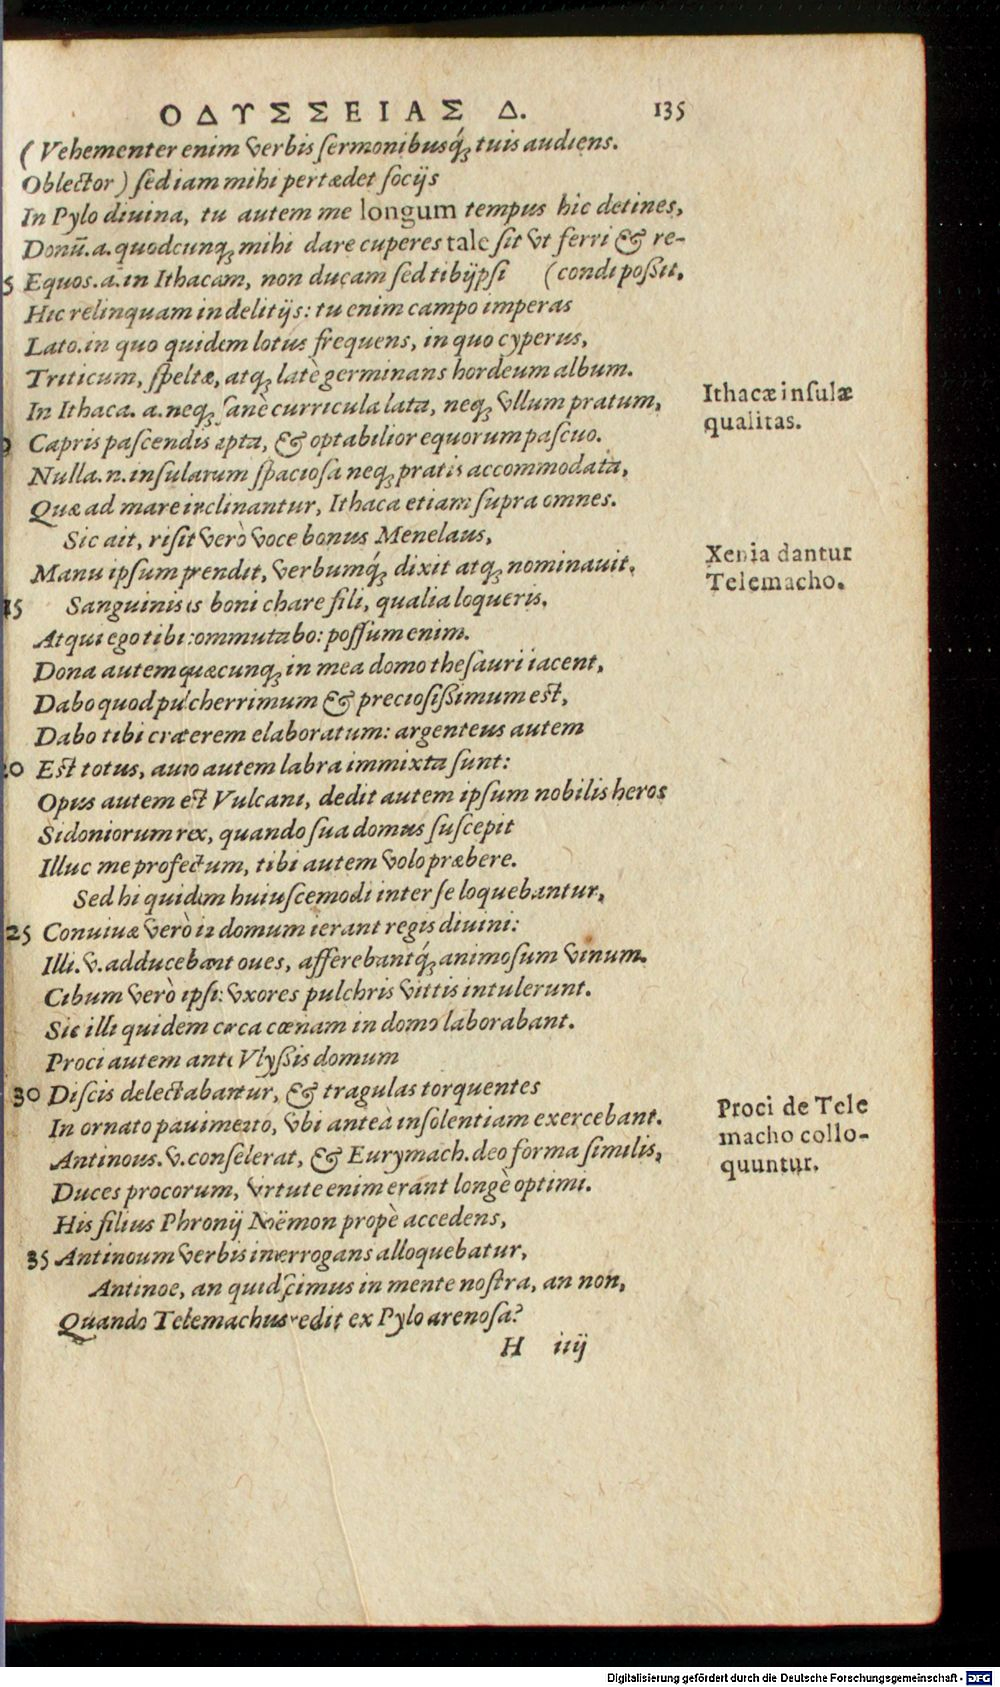 ΟΔΥΣΣΕΙΑΣ Δ. 135
( Vehementer enim verbis sermonibusq́; tuis audiens.
Oblector ) sed iam mihi pertædet socijs
In Pylo diuina, tu autem me longum tempus hic detines,
Donū. a. quodcunq; mihi dare cuperes tale sit vt ferri & re-
5 Equos. a. in Ithacam, non ducam sed tibi ijpsi (condi possit,
Hic relinquam in delitijs: tu enim campo imperas
Lato. in quo quidem lotus frequens, in quo cyperus,
Triticum, speltæ, atq; latè germinans hordeum album.
In Ithaca. a. neq; sanè curricula lata, neq; vllum pratum,
Capris pascendis apta, & optabilior equorum pascuo.
Nulla. n. insularum spaciosa neq; pratis accommodata,
Quæ ad mare inclinantur, Ithaca etiam supra omnes.
Sic ait, risit verò voce bonus Menelaus,
Manu ipsum prendit, verbumq́; dixit atq; nominauit.
15 Sanguinis is boni chare fili, qualia loqueris,
Atqui ego tibi commutabo: possum enim.
Dona autem quæcunq; in mea domo thesauri iacent,
Dabo quod pulcherrimum & preciosissimum est,
Dabo tibi craterem elaboratum: argenteus autem
20 Est totus, auro autem labra immixta sunt:
Opus autem est Vulcani, dedit autem ipsum nobilis heros
Sidoniorum rex, quando sua domus suscepit
Illuc me profectum, tibi autem volo præbere.
Sed hi quidem huiuscemodi inter se loquebantur,
25 Conuiuæ verò in domum ierant regis diuini:
Illi. v. adducebant oues, afferebantq́; animosum vinum.
Cibum verò ipsis vxores pulchris vittis intulerunt.
Sic illi quidem circa cœnam in domo laborabant.
Proci autem ante Vlyssis domum
30 Discis delectabantur, & tragulas torquentes
In ornato pauimento, vbi anteà insolentiam exercebant.
Antinous. v. conselerat, & Eurymach. deo forma similis,
Duces procorum, virtute enim erant longè optimi.
His filius Phronij Noëmon propè accedens,
35 Antinoum verbis interrogans alloquebatur,
Antinoe, an quid scimus in mente nostra, an non,
Quando Telemachus redit ex Pylo arenosa?
H iiij
Ithacæ insulæ
qualitas.
Xenia dantur
Telemacho.
Proci de Tele
macho collo-
quuntur.
Digitalisierung gefördert durch die Deutsche Forschungsgemeinschaft - DFG